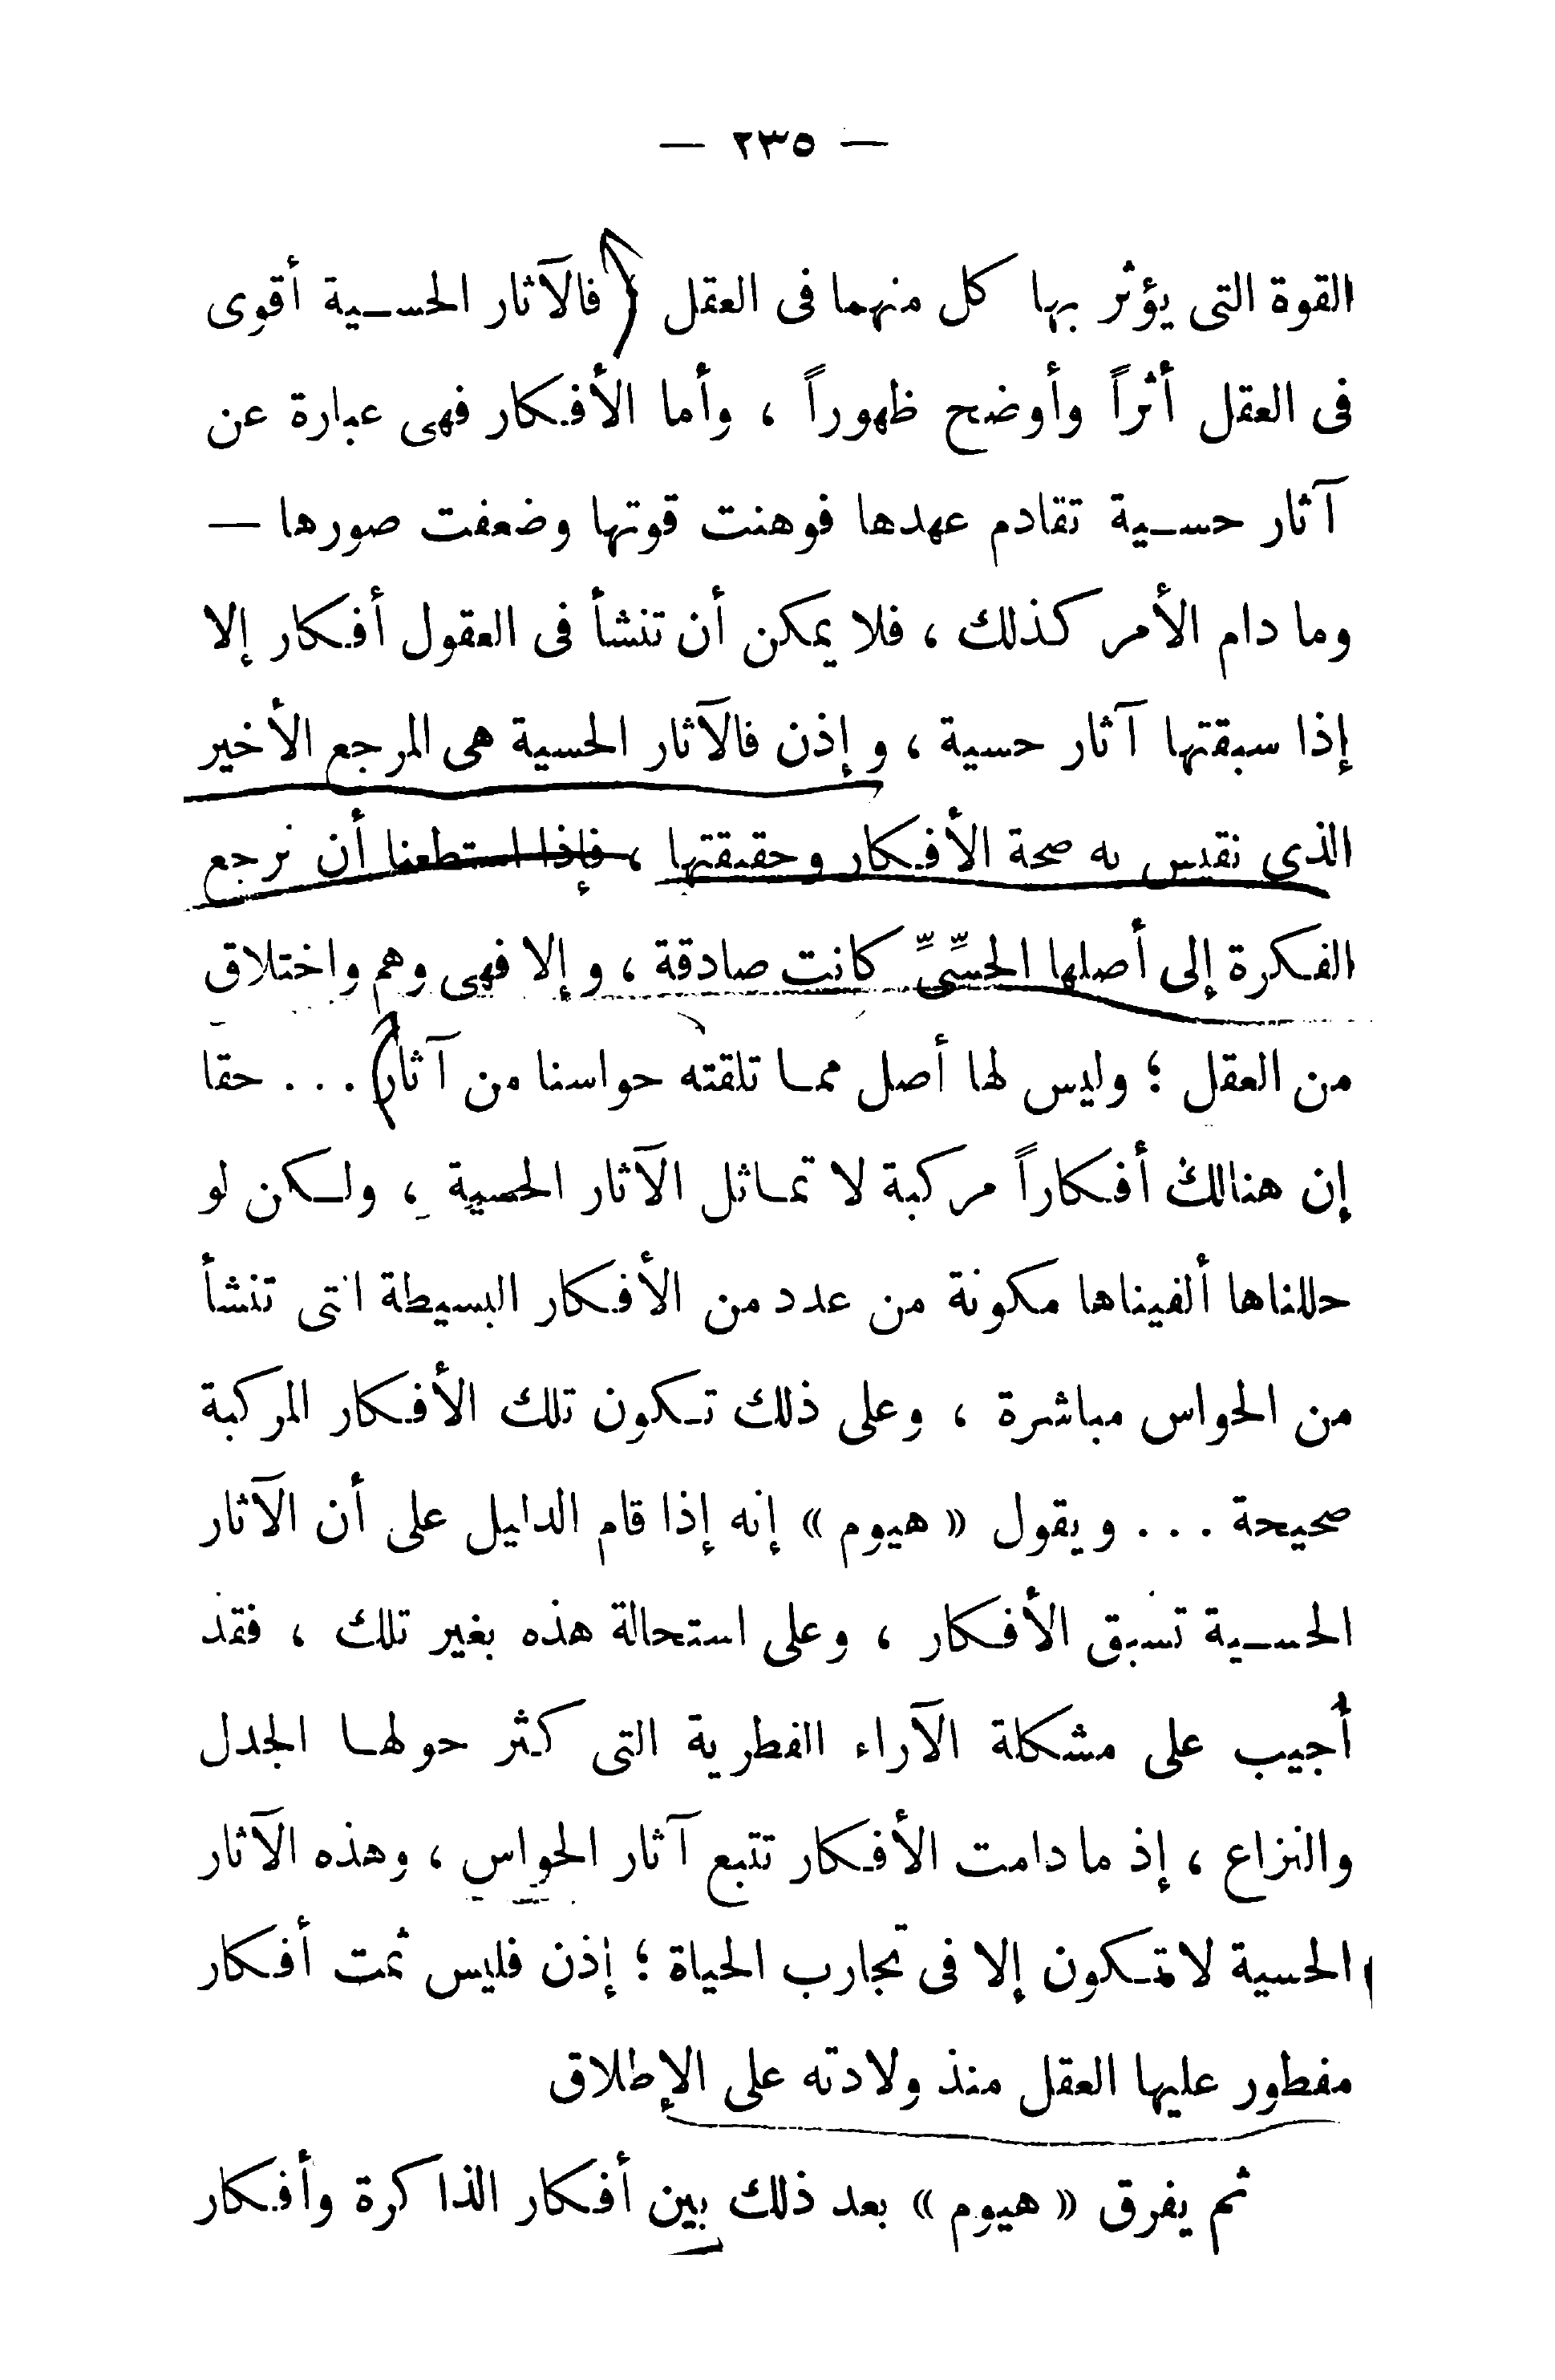 — ٢٣٥ —
القوة التى يؤثر بها كل منهما فى العقل فالآثار الحسية أقوى
فى العقل أثراً وأوضح ظهوراً ، وأما الأفكار فهى عبارة عن
آثار حسية تقادم عهدها فوهنت قوتها وضعفت صورها —
وما دام الأمر كذلك ، فلا يمكن أن تنشأ فى العقول أفكار إلا
إذا سبقتها آثار حسية ، وإذن فالآثار الحسية هى المرجع الأخير
الذى نقيس به صحة الأفكار وحقيقتها ، فإذا استطعنا أن نرجع
الفكرة إلى أصلها الحسِّىِّ كانت صادقة ، وإلا فهى وهم واختلاق
من العقل ؛ وليس لها أصل مما تلقته حواسنا من آثار . . . حقا
إن هنالك أفكاراً مركبة لا تماثل الآثار الحسية ، ولكن لو
حللناها ألفيناها مكونة من عدد من الأفكار البسيطة التى تنشأ
من الحواس مباشرة ، وعلى ذلك تكون تلك الأفكار المركبة
صحيحة . . . ويقول « هيوم » إنه إذا قام الدليل على أن الآثار
الحسية تسبق الأفكار ، وعلى استحالة هذه بغير تلك ، فقد
أُجيب على مشكلة الآراء الفطرية التى كثر حولها الجدل
والنزاع ، إذ ما دامت الأفكار تتبع آثار الحواس ، وهذه الآثار
الحسية لا تتكون إلا فى تجارب الحياة ؛ إذن فليس ثمت أفكار
مفطور عليها العقل منذ ولادته على الإطلاق
ثم يفرق « هيوم » بعد ذلك بين أفكار الذاكرة وأفكار